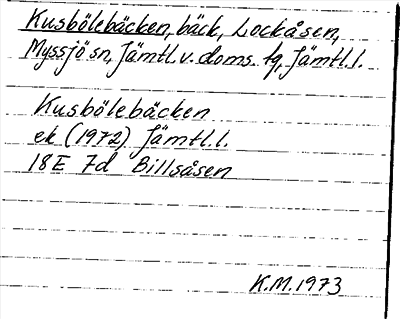 Kusbölebäcken, bäck, Lockåsen,
Myssjö sn, Jämtl. v. doms. tg, Jämtl. l.
Kusbölebäcken
ek (1972) Jämtl. l.
18E 7d Billsåsen
K.M. 1973